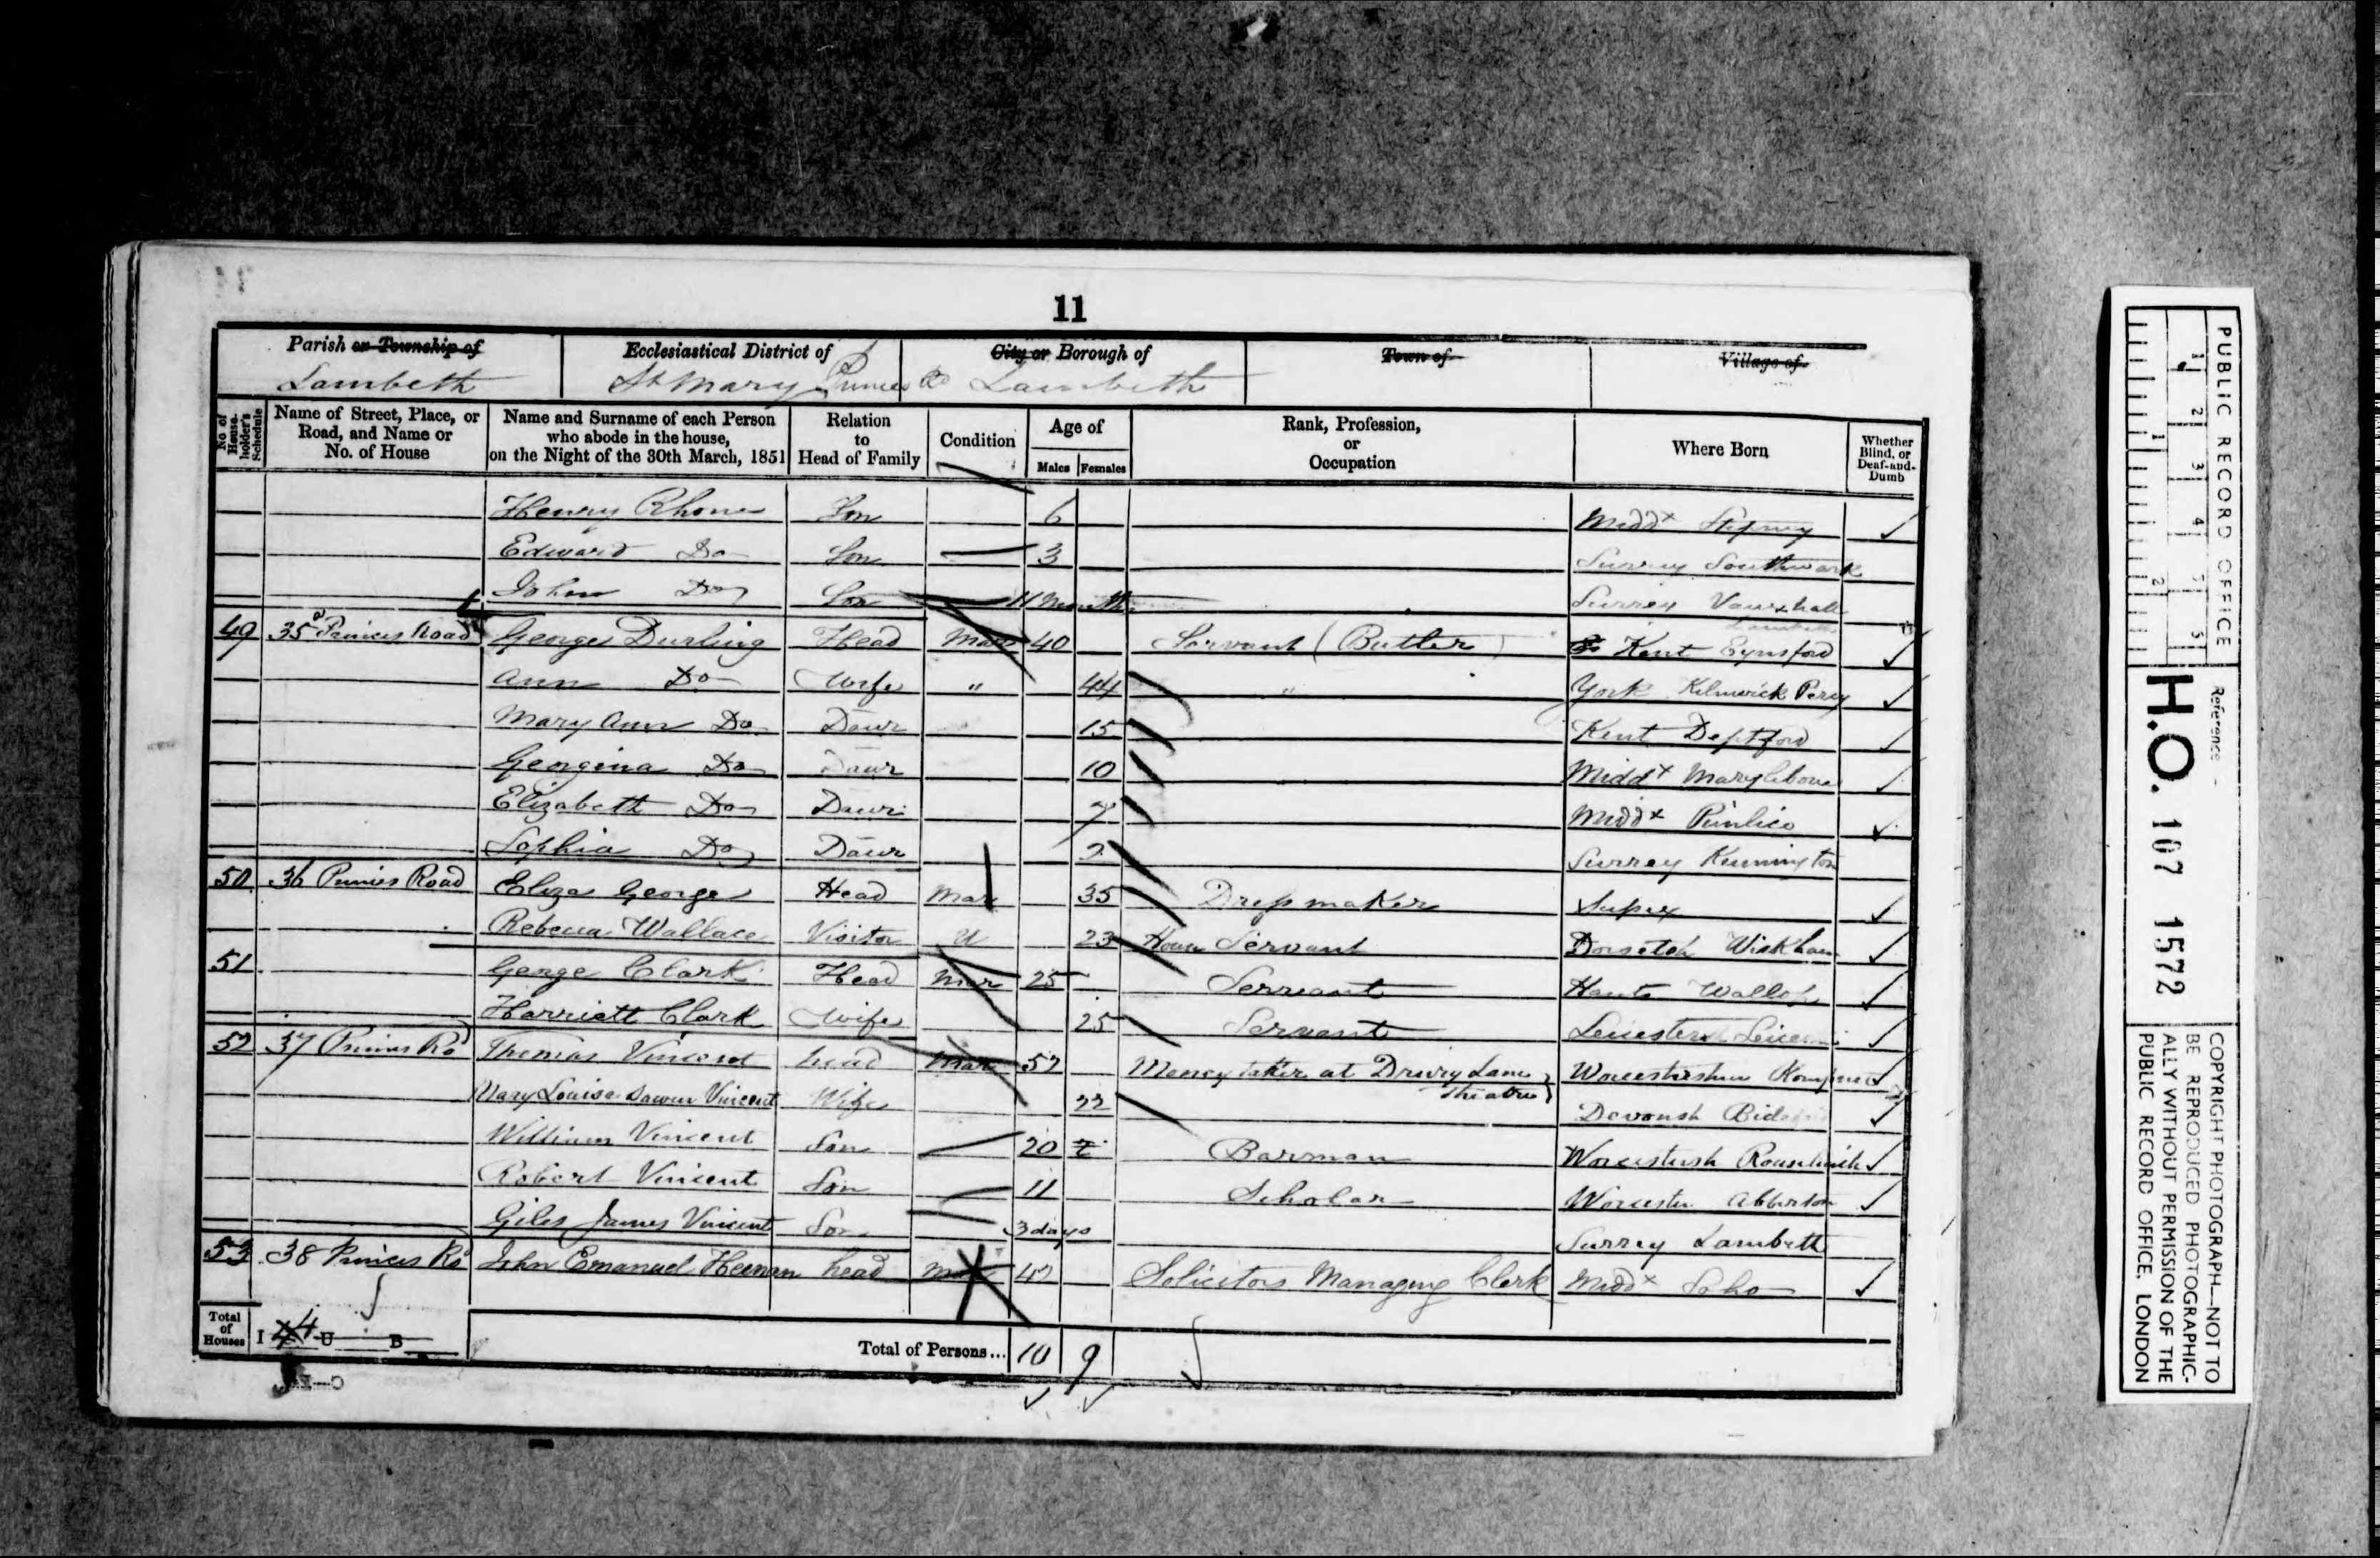 11
Parish or Township of
Ecclesiastical District of
City or Borough of
Town of
Village of
Lambeth
St Mary Princes Rd
Lambeth
No. of House-holder's Schedule
Name of Street, Place, or Road, and Name or No. of House
Name and Surname of each Person who abode in the house, on the Night of the 30th March, 1851
Relation to Head of Family
Condition
Age of
Males
Females
Rank, Profession, or Occupation
Where Born
Whether Blind, or Deaf-and-Dumb
Henry Rhone Son 6 Middx Stepney
Edward Do Son 3 Surrey Southwark
John Do Son 11 Months Surrey Vauxhall
Lambeth
49 35a Princes Road George Durling Head Mar 40 Servant (Butler) Kent Eynsford
Ann Do Wife " 44 " York Kilnwick Percy
Mary Ann Do Daur 15 Kent Deptford
Georgina Do Daur 10 Middx Marylebone
Elizabeth Do Daur 7 Middx Pimlico
Sophia Do Daur 2 Surrey Kennington
50 36 Princes Road Eliza George Head Mar 35 Dressmaker Sussex
Rebecca Wallace Visitor U 23 House Servant Dorsetsh
51 George Clark Head Mar 25 Servant Hants Wallop
Harriett Clark Wife 25 Servant
52 37 Princes Rd Thomas Vincent head Mar 52 Money taker at Drury Lane Theatre Worcestershire
Mary Louisa Vincent Wife 22 Devonsh
William Vincent Son 20 Barman Worcestersh
Robert Vincent Son 11 Scholar Worcester Abberton
Giles James Vincent Son 3 days Surrey Lambeth
53 38 Princes Rd John Emanuel Heenan head Mar 42 Solicitors Managing Clerk Middx Soho
Total of Houses
I 4 U B
Total of Persons... 10 9
PUBLIC RECORD OFFICE
1 2 3 4 5
1 2
Reference -
H.O. 107 1572
COPYRIGHT PHOTOGRAPH—NOT TO
BE REPRODUCED PHOTOGRAPHIC-
ALLY WITHOUT PERMISSION OF THE
PUBLIC RECORD OFFICE, LONDON